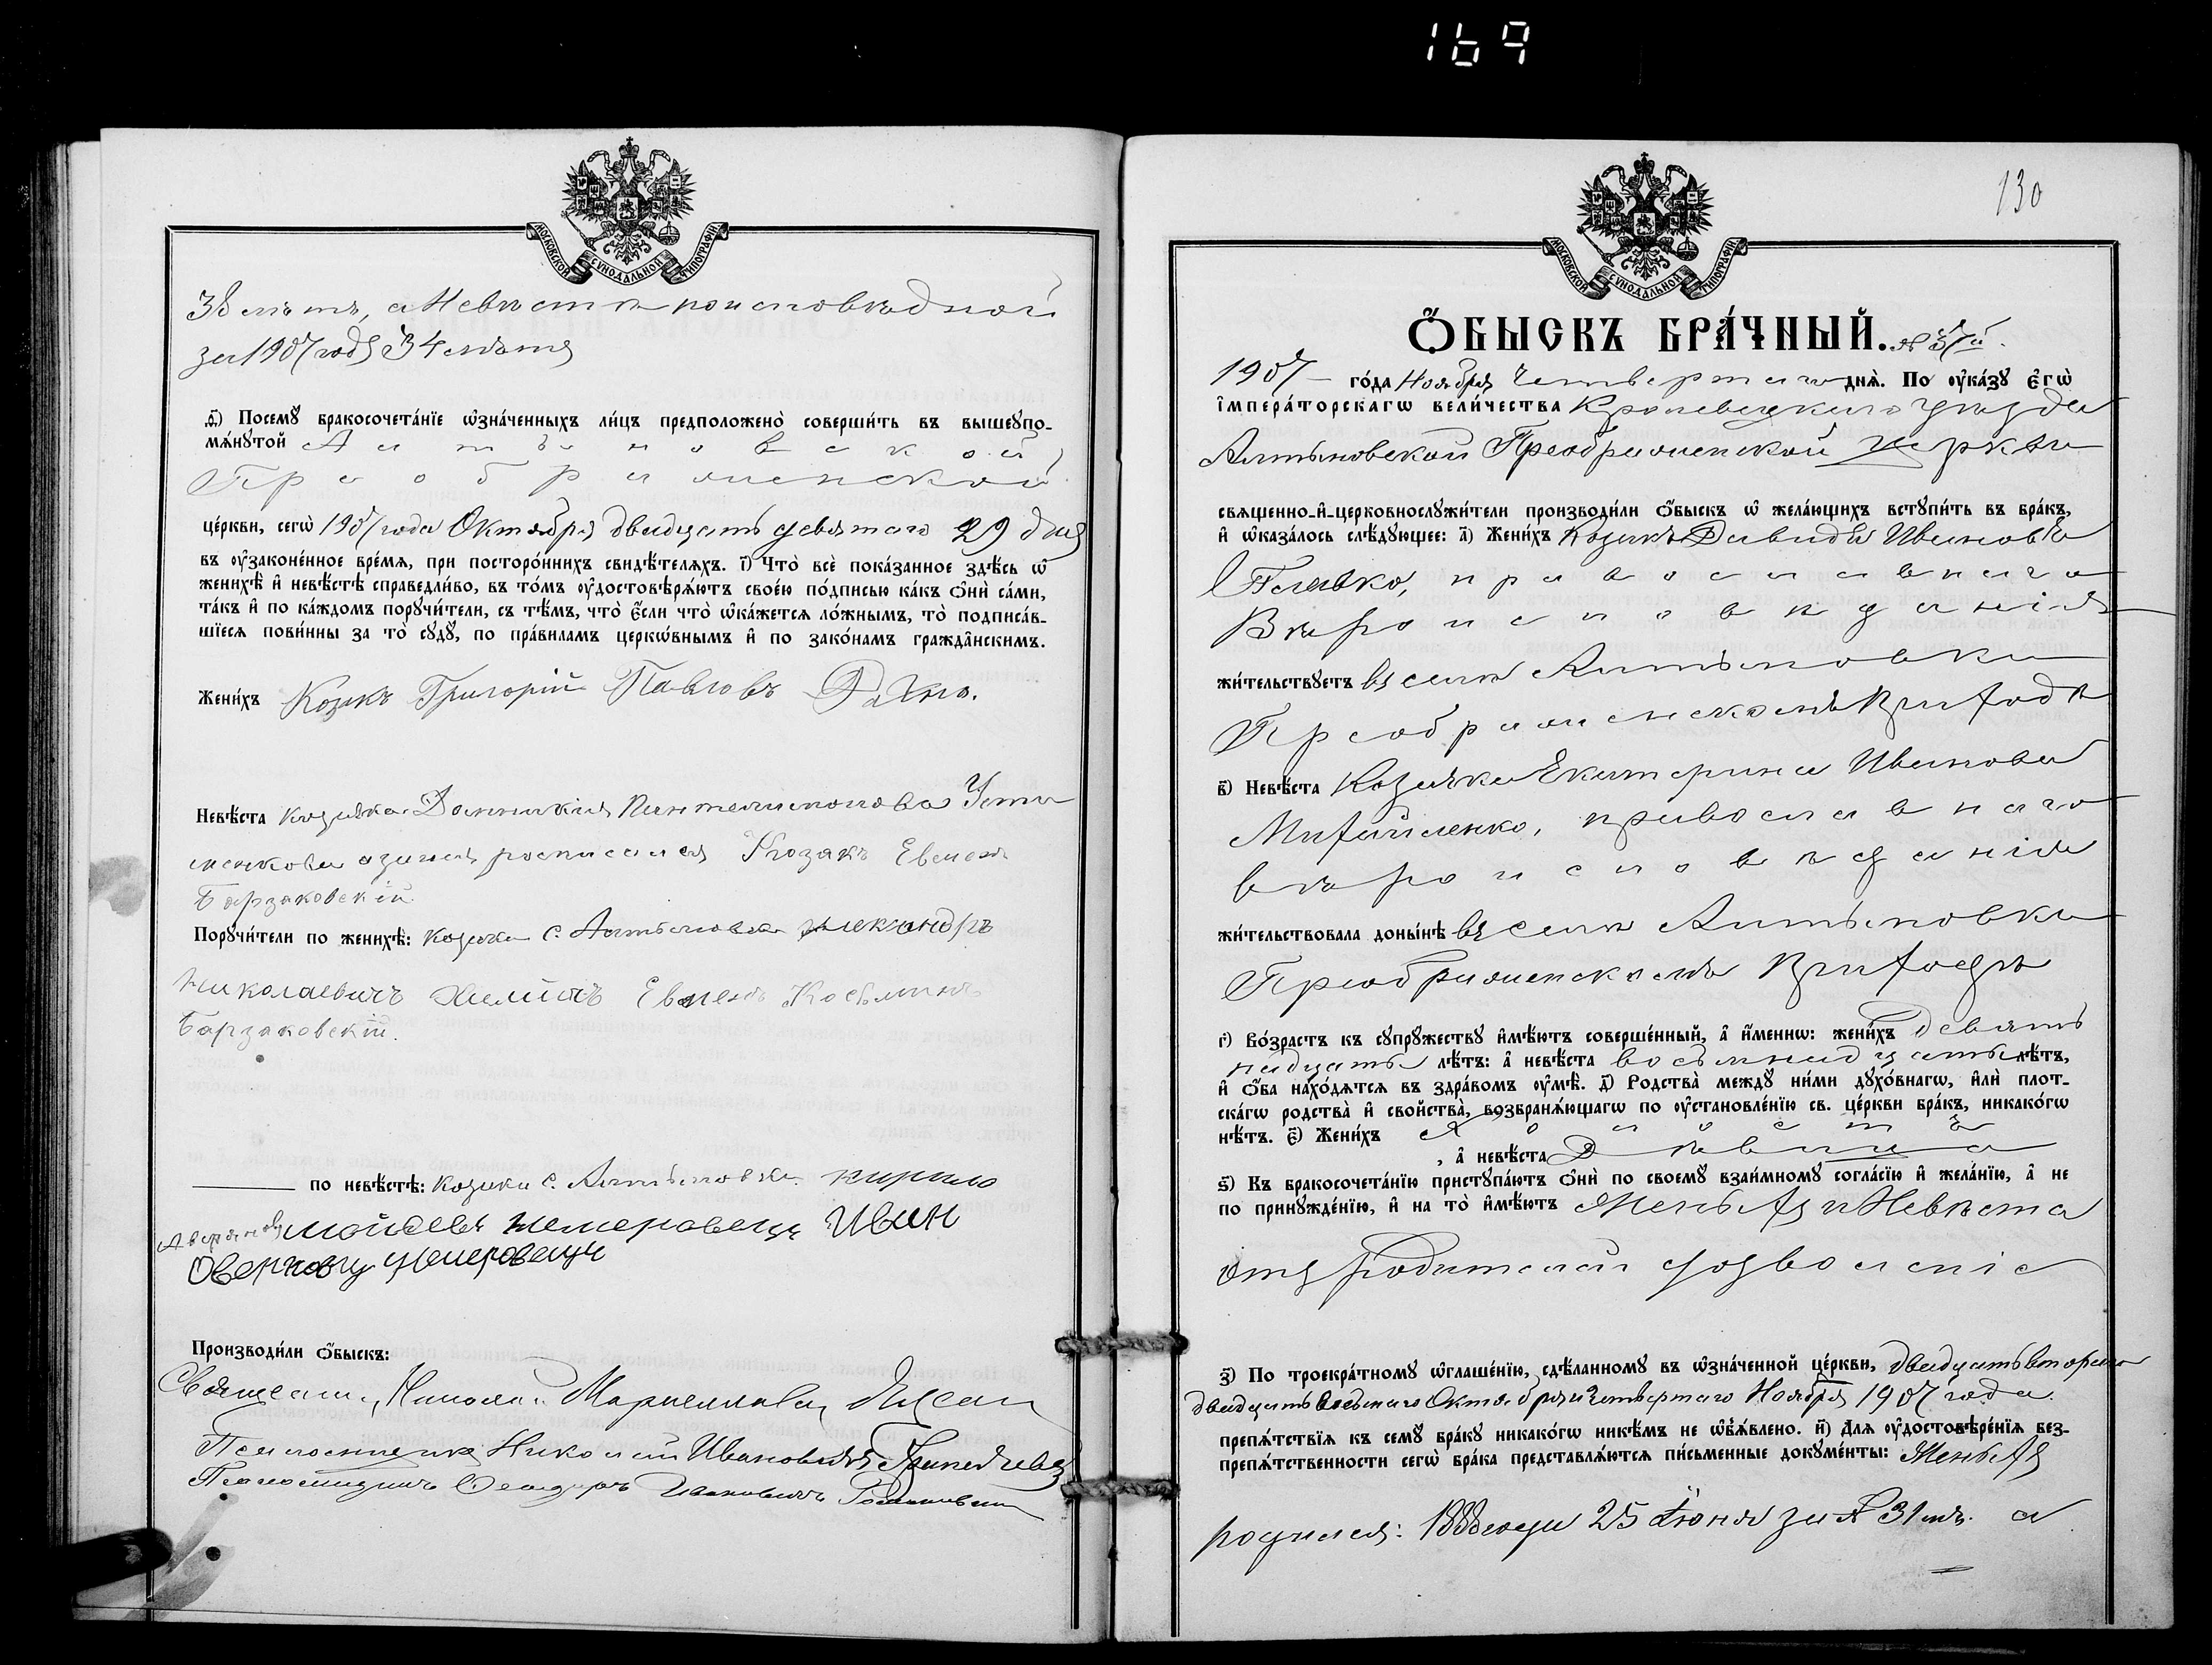 169
МОСКОВСКОЙ СѴНОДАЛЬНОЙ ТИПОГРАФІИ
38 лѣтъ, а Невѣста по исповѣдной
за 1907 годъ 34 лѣтъ
ѳ҃) Посемꙋ бракосочета́нїе ѡ҆зна́ченныхъ ли́цъ предположено̀ соверши́ть въ вышеꙋпо-
мѧ́нꙋтой Алтыновской
Преображенской
це́ркви, сегѡ̀ 1907 года Октября двадцать девятаго 29 дня
въ ᲂу҆зако́ненное вре́мѧ, при посторо́ннихъ свидѣ́телѧхъ. і҃) Что̀ всѐ пока́занное здѣ́сь ѡ҆
женихѣ̀ и҆ невѣ́стѣ справедли́во, въ то́мъ ᲂу҆достовѣрѧ́ютъ свое́ю по́дписью ка́къ ѻ҆нѝ са́ми,
та́къ и҆ по ка́ждомъ порꙋчи́тели, съ тѣ́мъ, что̀ є҆́сли что̀ ѡ҆ка́жетсѧ ло́жнымъ, то̀ подписа́в-
шїесѧ пови́нны за то̀ сꙋдꙋ̀, по пра́виламъ церкѡ́внымъ и҆ по зако́намъ гражда̑нскимъ.
Жени́хъ Козакъ Григорій Павловъ Рахно.
Невѣ́ста козачка Домникія Пантелимонова Усти
менкова за нея росписался Козакъ Евмен
Барзаковскій
Порꙋчи́тели по женихѣ̀: козаки с. Алтыновки Александръ
Николаевичъ Евмен Косьминъ
Барзаковскій.
по невѣ́стѣ: козаки с. Алтыновки кирило
мойсевъ немеровецъ Иван
Немеровецъ
Производи́ли ѻ҆́быскъ:
Священ. Николай
Псаломщикъ Николай Ивановичъ
Псаломщикъ Ивановичъ
130
МОСКОВСКОЙ СѴНОДАЛЬНОЙ ТИПОГРАФІИ
Ѻ҆БЫСКЪ БРА́ЧНЫЙ. № 37й.
1907 го́да Ноября Четвертаго днѧ̀. По ᲂу҆ка́зꙋ є҆гѡ̀
і҆мпера́торскагѡ вели́чества Кролевецкаго уѣзда
Алтыновской Преображенской церкви
свѧщенно-и҆-церковнослꙋжи́тели производи́ли ѻ҆́быскъ ѡ҆ жела́ющихъ встꙋпи́ть въ бра́къ,
и҆ ѡ҆каза́лось слѣ́дꙋющее: а҃) Жени́хъ Козакъ Давидъ Ивановъ
Главко, православнаго
Вѣроисповѣданія
жи́тельствꙋетъ въ селѣ Алтыновки
Преображенскомъ Приходѣ
в҃) Невѣ́ста Козачка Екатерина Иванова
Михайленко, православнаго
вѣроисповѣданія
жи́тельствовала доны́нѣ въ селѣ Алтыновки
Преображенскомъ Приходѣ
г҃) Во́зрастъ къ сꙋпрꙋ́жествꙋ и҆мѣ́ютъ соверше́нный, а҆ и҆́меннѡ: жени́хъ девять
надцать лѣ́тъ: а҆ невѣ́ста восьмнадцать лѣ́тъ,
и҆ ѻ҆́ба нахо́дѧтсѧ въ здра́вомъ ᲂу҆мѣ̀. д҃) Родства̀ междꙋ̀ ни́ми дꙋхо́внагѡ, и҆лѝ плот-
ска́гѡ родства̀ и҆ сво́йства, возбранѧ́ющагѡ по ᲂу҆становле́нїю св. це́ркви бра́къ, никако́гѡ
нѣ́тъ. є҃) Жени́хъ холостъ
, а҆ невѣ́ста дѣвица
ѕ҃) Къ бракосочета́нїю пристꙋпа́ютъ ѻ҆нѝ по своемꙋ̀ взаи́мномꙋ согла́сїю и҆ жела́нїю, а҆ не
по принꙋжде́нїю, и҆ на то̀ и҆мѣ́ютъ Женихъ и Невѣста
отъ родителей дозволеніе
з҃) По троекра́тномꙋ ѡ҆глаше́нїю, сдѣ́ланномꙋ въ ѡ҆зна́ченной це́ркви, двадцать втораго
двадцать восьмаго Октября и Четвертаго Ноября 1907 года.
препѧ́тствїѧ къ семꙋ̀ бра́кꙋ никако́гѡ никѣ́мъ не ѡ҆б̾ѧ́влено. и҃) Длѧ ᲂу҆достовѣре́нїѧ без-
препѧ́тственности сегѡ̀ бра́ка представлѧ́ютсѧ пи́сьменные докꙋме́нты: Женихъ
родился: 1888 года 25 Іюня за № 31 мъ. а